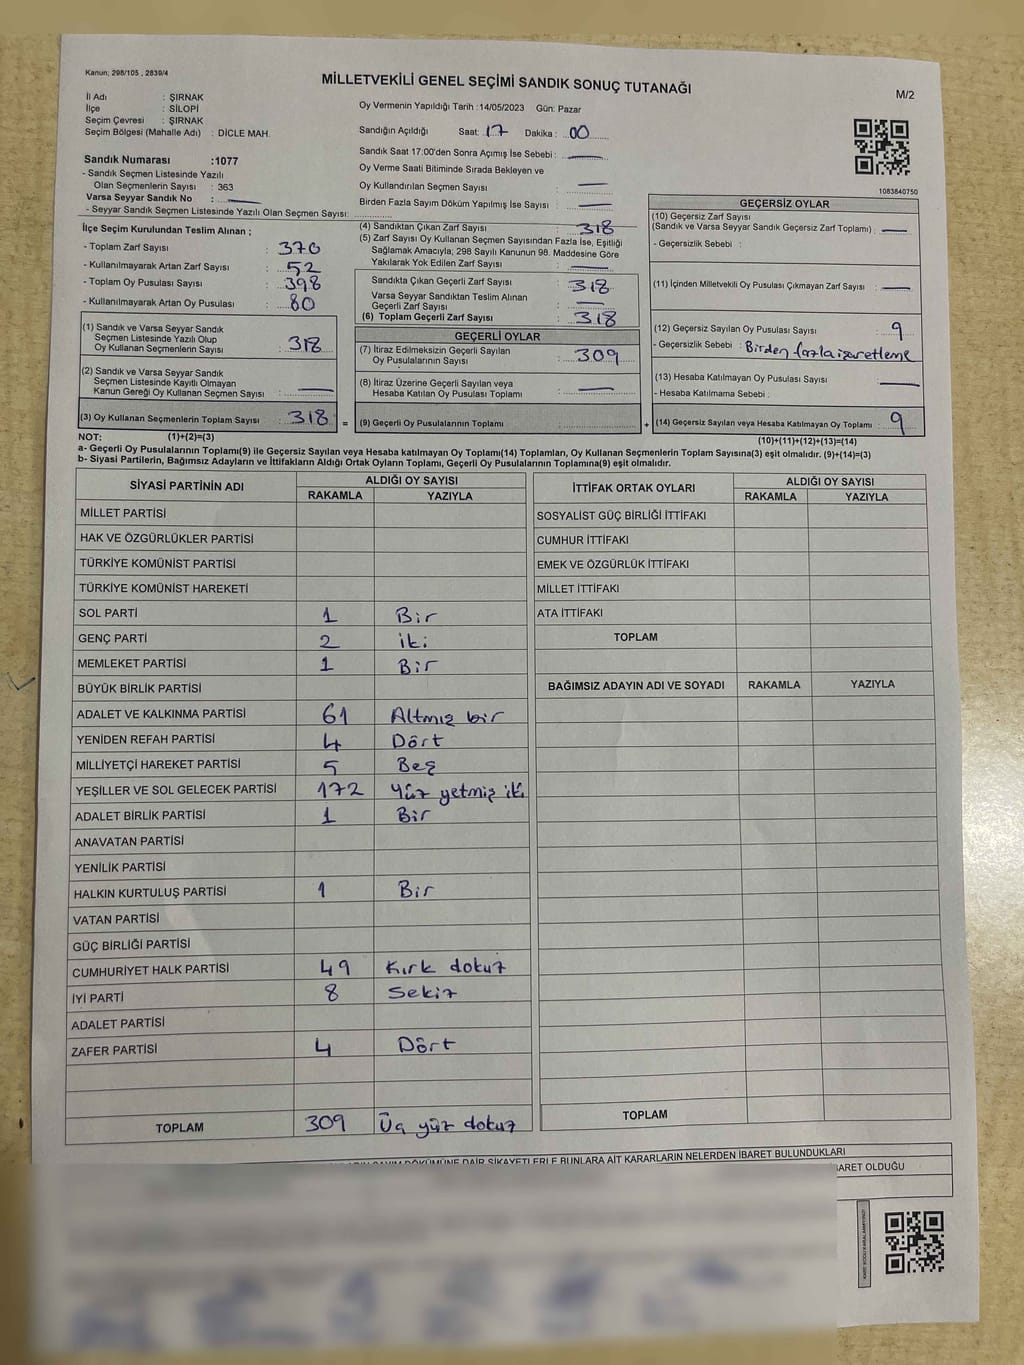 Kanun; 298/105 , 2839/4
MİLLETVEKİLİ GENEL SEÇİMİ SANDIK SONUÇ TUTANAĞI
M/2
İl Adı : ŞIRNAK
İlçe : SİLOPİ
Seçim Çevresi : ŞIRNAK
Seçim Bölgesi (Mahalle Adı) : DİCLE MAH.
Sandık Numarası :1077
- Sandık Seçmen Listesinde Yazılı
Olan Seçmenlerin Sayısı : 363
Varsa Seyyar Sandık No :
- Seyyar Sandık Seçmen Listesinde Yazılı Olan Seçmen Sayısı:
Oy Vermenin Yapıldığı Tarih :14/05/2023 Gün: Pazar
Sandığın Açıldığı Saat: 17 Dakika : 00
Sandık Saat 17:00'den Sonra Açımış İse Sebebi :
Oy Verme Saati Bitiminde Sırada Bekleyen ve
Oy Kullandırılan Seçmen Sayısı :
Birden Fazla Sayım Döküm Yapılmış İse Sayısı :
1083840750
İlçe Seçim Kurulundan Teslim Alınan ;
- Toplam Zarf Sayısı : 370
- Kullanılmayarak Artan Zarf Sayısı : 52
- Toplam Oy Pusulası Sayısı : 398
- Kullanılmayarak Artan Oy Pusulası : 80
(1) Sandık ve Varsa Seyyar Sandık
Seçmen Listesinde Yazılı Olup
Oy Kullanan Seçmenlerin Sayısı : 318
(2) Sandık ve Varsa Seyyar Sandık
Seçmen Listesinde Kayıtlı Olmayan
Kanun Gereği Oy Kullanan Seçmen Sayısı :
(3) Oy Kullanan Seçmenlerin Toplam Sayısı : 318
(4) Sandıktan Çıkan Zarf Sayısı : 318
(5) Zarf Sayısı Oy Kullanan Seçmen Sayısından Fazla İse, Eşitliği
Sağlamak Amacıyla; 298 Sayılı Kanunun 98. Maddesine Göre
Yakılarak Yok Edilen Zarf Sayısı :
Sandıkta Çıkan Geçerli Zarf Sayısı : 318
Varsa Seyyar Sandıktan Teslim Alınan
Geçerli Zarf Sayısı :
(6) Toplam Geçerli Zarf Sayısı : 318
GEÇERLİ OYLAR
(7) İtiraz Edilmeksizin Geçerli Sayılan
Oy Pusulalarının Sayısı : 309
(8) İtiraz Üzerine Geçerli Sayılan veya
Hesaba Katılan Oy Pusulası Toplamı :
= (9) Geçerli Oy Pusulalarının Toplamı :
GEÇERSİZ OYLAR
(10) Geçersiz Zarf Sayısı
(Sandık ve Varsa Seyyar Sandık Geçersiz Zarf Toplamı) :
- Geçersizlik Sebebi :
(11) İçinden Milletvekili Oy Pusulası Çıkmayan Zarf Sayısı :
(12) Geçersiz Sayılan Oy Pusulası Sayısı : 9
- Geçersizlik Sebebi : Birden fazla işaretleme
(13) Hesaba Katılmayan Oy Pusulası Sayısı :
- Hesaba Katılmama Sebebi :
+ (14) Geçersiz Sayılan veya Hesaba Katılmayan Oy Toplamı : 9
NOT: (1)+(2)=(3)
(10)+(11)+(12)+(13)=(14)
a- Geçerli Oy Pusulalarının Toplamı(9) ile Geçersiz Sayılan veya Hesaba katılmayan Oy Toplamı(14) Toplamları, Oy Kullanan Seçmenlerin Toplam Sayısına(3) eşit olmalıdır. (9)+(14)=(3)
b- Siyasi Partilerin, Bağımsız Adayların ve İttifakların Aldığı Ortak Oyların Toplamı, Geçerli Oy Pusulalarının Toplamına(9) eşit olmalıdır.
SİYASİ PARTİNİN ADI ALDIĞI OY SAYISI
RAKAMLA YAZIYLA
MİLLET PARTİSİ
HAK VE ÖZGÜRLÜKLER PARTİSİ
TÜRKİYE KOMÜNİST PARTİSİ
TÜRKİYE KOMÜNİST HAREKETİ
SOL PARTİ 1 Bir
GENÇ PARTİ 2 iki
MEMLEKET PARTİSİ 1 Bir
BÜYÜK BİRLİK PARTİSİ
ADALET VE KALKINMA PARTİSİ 61 Altmış bir
YENİDEN REFAH PARTİSİ 4 Dört
MİLLİYETÇİ HAREKET PARTİSİ 5 Beş
YEŞİLLER VE SOL GELECEK PARTİSİ 172 Yüz yetmiş iki
ADALET BİRLİK PARTİSİ 1 Bir
ANAVATAN PARTİSİ
YENİLİK PARTİSİ
HALKIN KURTULUŞ PARTİSİ 1 Bir
VATAN PARTİSİ
GÜÇ BİRLİĞİ PARTİSİ
CUMHURİYET HALK PARTİSİ 49 Kırk dokuz
İYİ PARTİ 8 Sekiz
ADALET PARTİSİ
ZAFER PARTİSİ 4 Dört
TOPLAM 309 Üç yüz dokuz
İTTİFAK ORTAK OYLARI ALDIĞI OY SAYISI
RAKAMLA YAZIYLA
SOSYALİST GÜÇ BİRLİĞİ İTTİFAKI
CUMHUR İTTİFAKI
EMEK VE ÖZGÜRLÜK İTTİFAKI
MİLLET İTTİFAKI
ATA İTTİFAKI
TOPLAM
BAĞIMSIZ ADAYIN ADI VE SOYADI RAKAMLA YAZIYLA
TOPLAM
SAYIM DÖKÜMÜNE DAİR ŞİKAYETLERLE BUNLARA AİT KARARLARIN NELERDEN İBARET BULUNDUKLARI
İBARET OLDUĞU